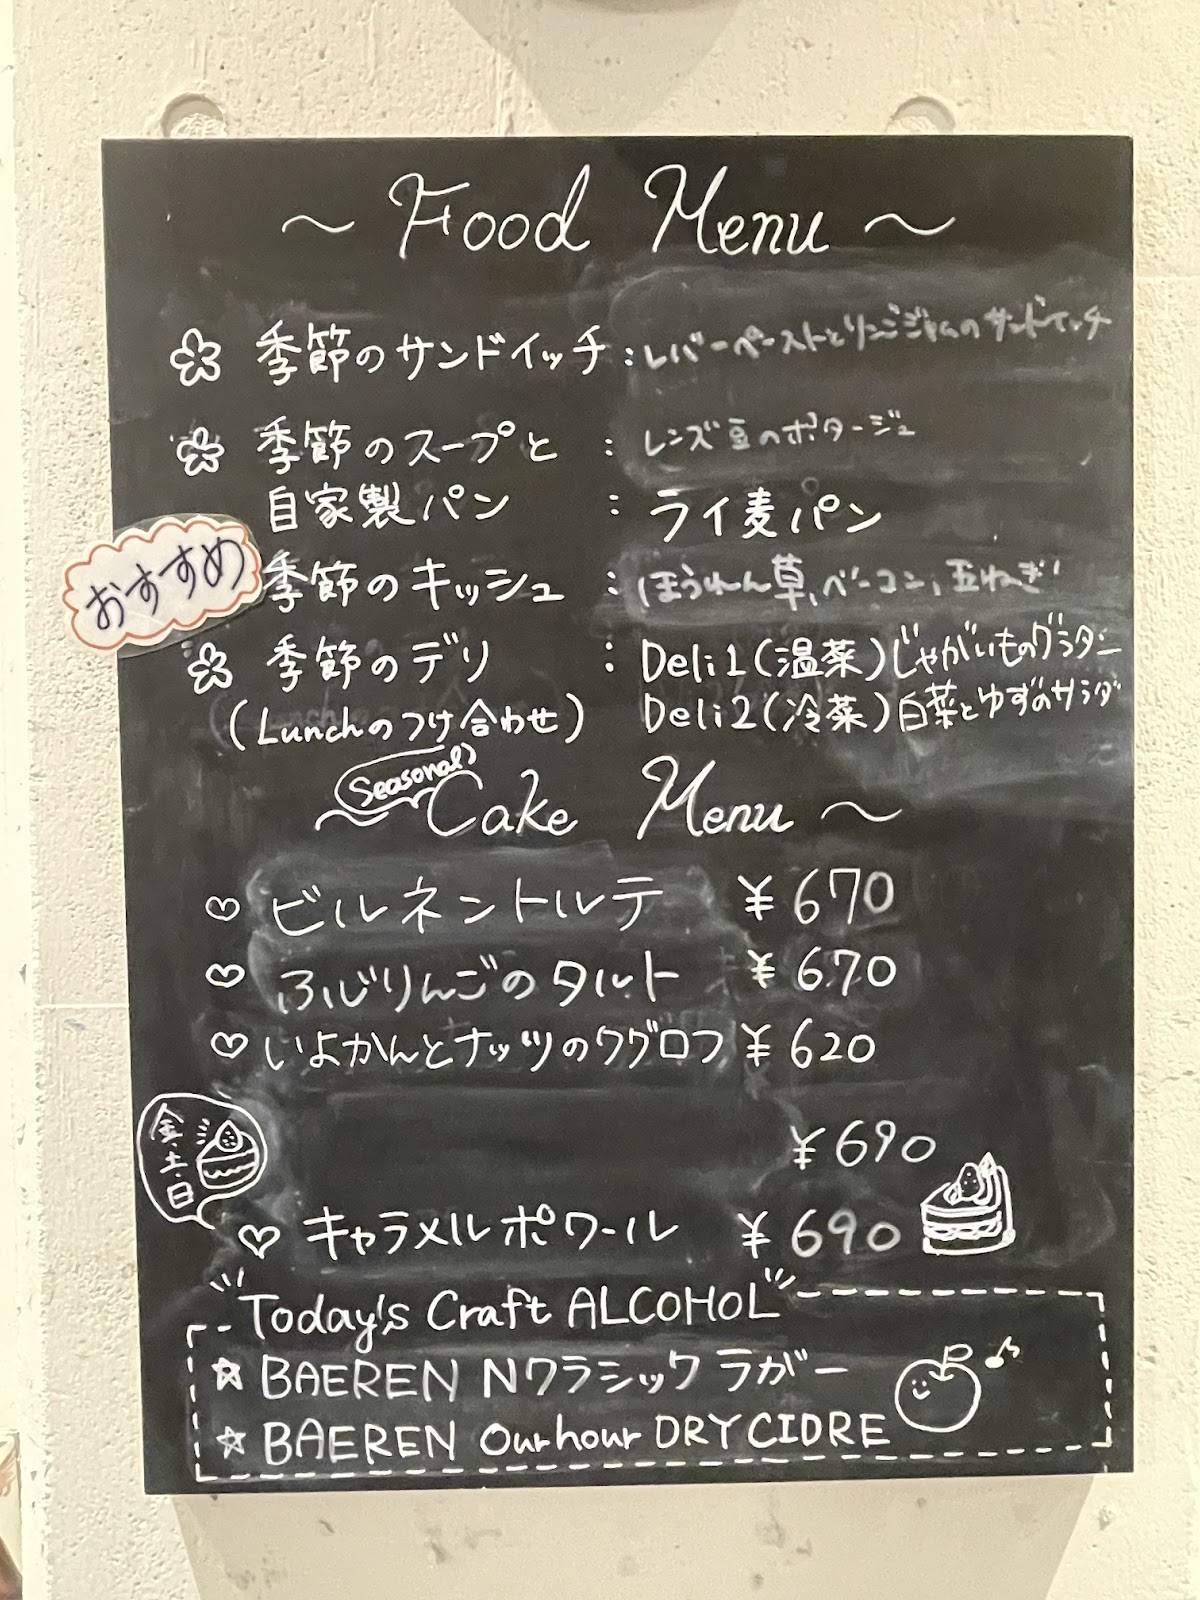 ~ Food Menu ~
季節のサンドイッチ : レバーペーストとりんごジャムのサンドイッチ
季節のスープと : レンズ豆のポタージュ
自家製パン : ライ麦パン
おすすめ
季節のキッシュ : ほうれん草、ベーコン、玉ねぎ
季節のデリ : Deli1(温菜)じゃがいものグラタン
(Lunchのつけ合わせ) Deli2(冷菜)白菜とゆずのサラダ
Seasonal
~ Cake Menu ~
♡ ビルネントルテ ¥670
♡ ふじりんごのタルト ¥670
♡ いよかんとナッツのクグロフ ¥620
金・土・日
¥690
♡ キャラメルポワール ¥690
Today's Craft ALCOHOL
☆ BAEREN Nクラシック ラガー
☆ BAEREN Our hour DRY CIDRE